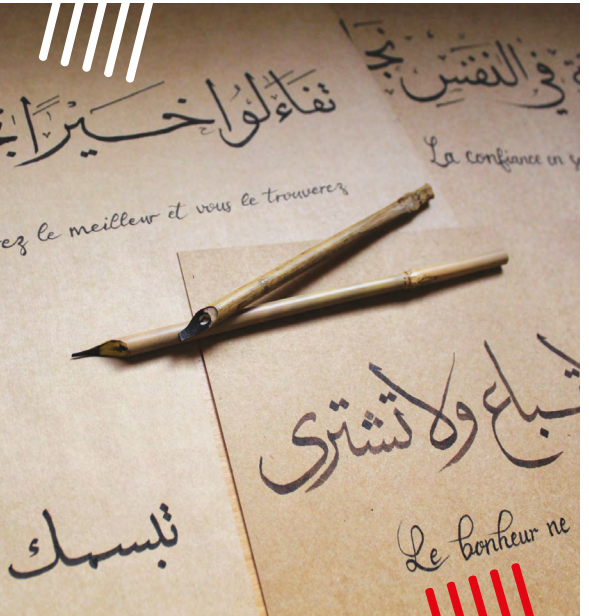 تفاءلوا خيرًا
ez le meilleur et vous le trouverez
في النفس
La confiance en
تباع ولا تشترى
Le bonheur ne
تبسمك